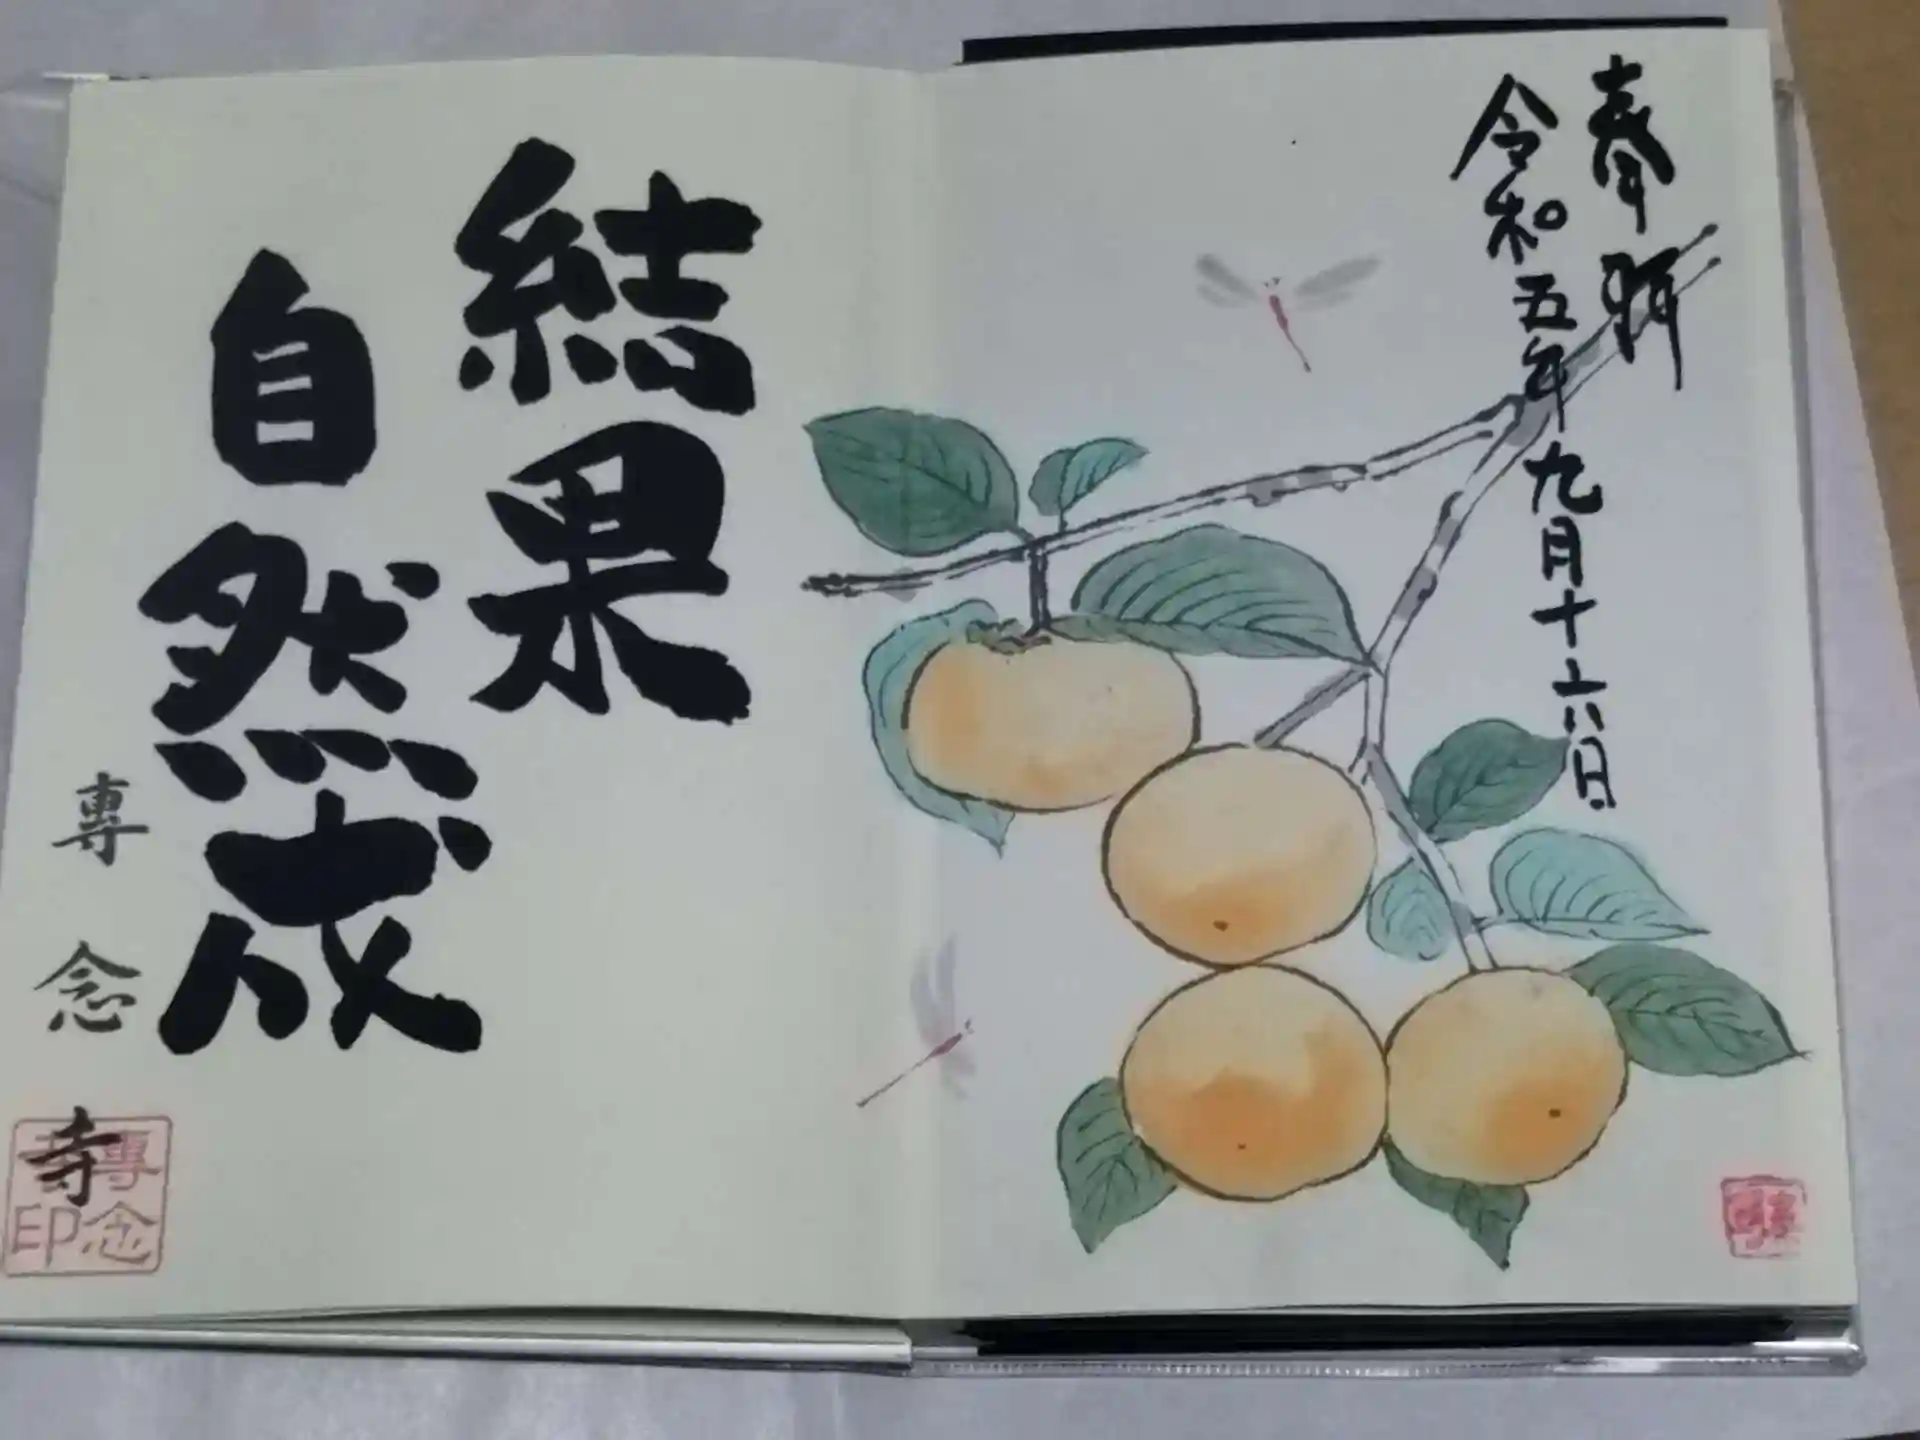 奉拝
令和五年九月十六日
結果
自然成
專念寺
專念
寺印